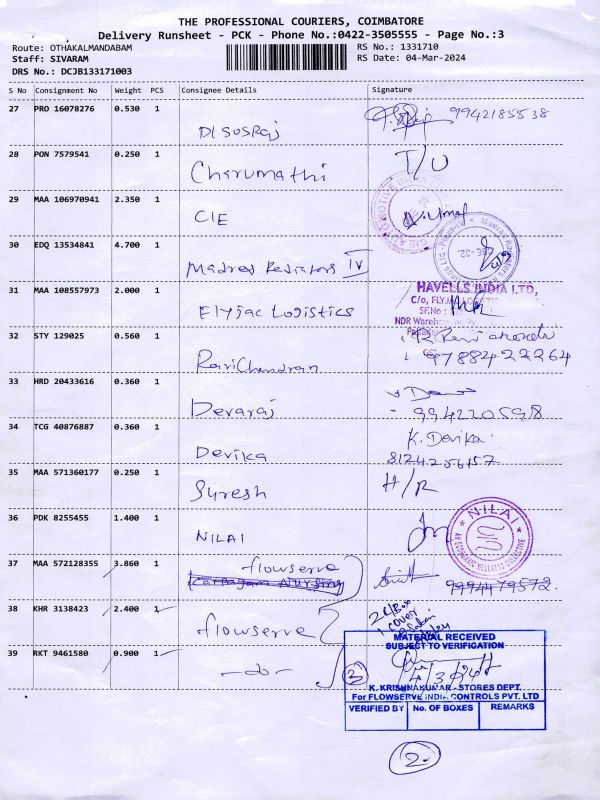 THE PROFESSIONAL COURIERS, COIMBATORE
Delivery Runsheet - PCK - Phone No.:0422-3505555 - Page No.:3
Route: OTHAKALMANDABAM
RS No.: 1331710
Staff: SIVARAM
RS Date: 04-Mar-2024
DRS No.: DCJB133171003
S No Consignment No Weight PCS Consignee Details Signature
27 PRO 16078276 0.530 1
9942185538
28 PON 7579541 0.250 1 Charumathi T/U
29 MAA 106970941 2.350 1 CIE
30 EDQ 13534841 4.700 1 Madras Radiators IV
31 MAA 108557973 2.000 1 Flyjac Logistics
HAVELLS INDIA LTD.
C/o, FLYJAC
SF.No:
NDR Wareh
32 STY 129025 0.560 1 RaviChandran
9788422264
33 HRD 20433616 0.360 1 Devaraj
9942205918
34 TCG 40876887 0.360 1 Devika K. Devika
8124256157
35 MAA 571360177 0.250 1 Suresh H/R
36 PDK 8255455 1.400 1 NILAI
NILAI
37 MAA 572128355 3.860 1 flowserve
Carpagam Nursing
9994479572
38 KHR 3138423 2.400 1 flowserve
1 cover
MATERIAL RECEIVED
SUBJECT TO VERIFICATION
39 RKT 9461580 0.900 1 -do-
3
4/3/24
K. KRISHNAKUMAR - STORES DEPT.
For FLOWSERVE INDIA CONTROLS PVT. LTD
VERIFIED BY No. OF BOXES REMARKS
2.